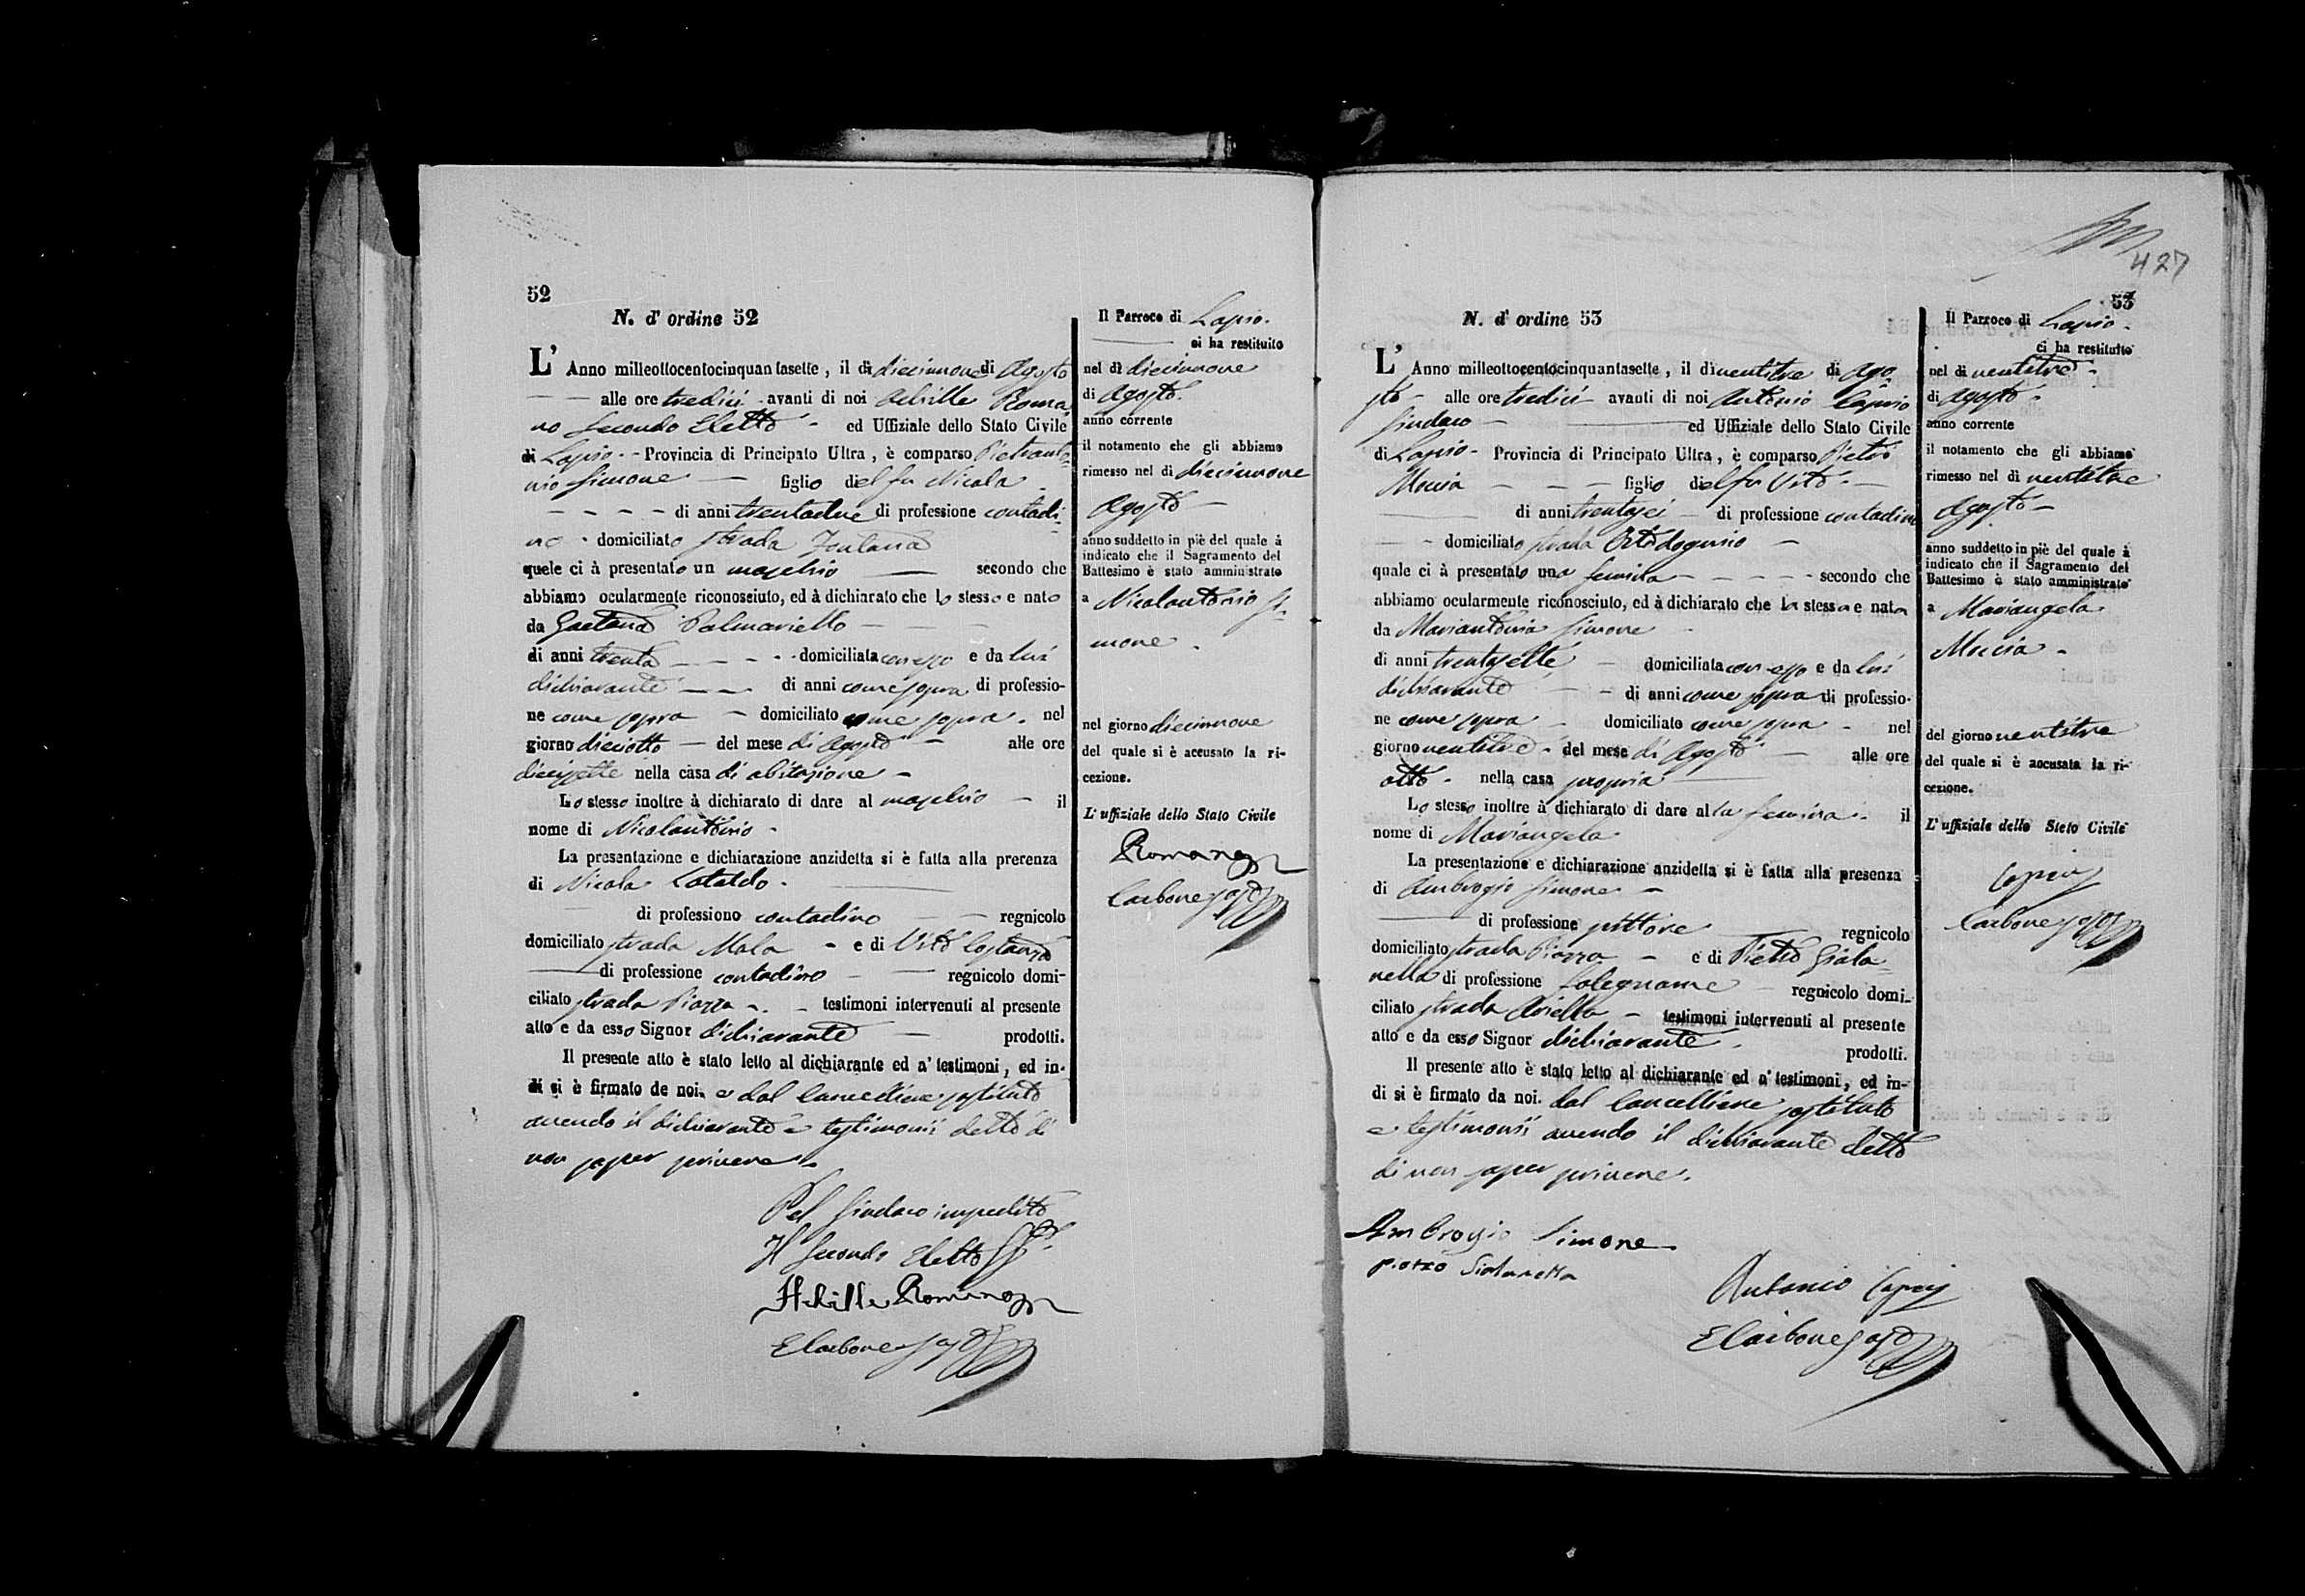 52
N. d' ordine 52
L' Anno milleottocentocinquantasette, il dì diecinnove di Agosto
alle ore tredici avanti di noi Achille Roma
no Secondo Eletto ed Uffiziale dello Stato Civile
di Lapio Provincia di Principato Ultra, è comparso Pietranto
nio Simone figlio del fu Nicola
di anni trentadue di professione contadi
no domiciliato strada Fontana
quele ci à presentato un maschio secondo che
abbiamo ocularmente riconosciuto, ed à dichiarato che lo stesso e nato
da Gaetana Palmariello
di anni trenta domiciliata con esso e da lui
dichiarante di anni come sopra di professio-
ne come sopra domiciliato come sopra. nel
giorno dieciotto del mese di Agosto alle ore
diecisette nella casa di abitazione
Lo stesso inoltre à dichiarato di dare al maschio il
nome di Nicolantonio
La presentazione e dichiarazione anzidetta si è fatta alla prerenza
di Nicola Cataldo
di professiono contadino regnicolo
domiciliato strada Mala e di Vito Costanza
di professione contadino regnicolo domi-
ciliato strada Piazza testimoni intervenuti al presente
atto e da esso Signor dichiarante prodotti.
Il presente atto è stato letto al dichiarante ed a' testimoni, ed in-
di si è firmato de noi. e dal Cancelliere sostituto
avendo il dichiarante e testimonii detto di
non saper scrivere
Pel Sindaco impedito
Il Secondo Eletto
Achille Romano
E Carbone sost
Il Parroco di Lapio.
ci ha restituito
nel dì diecinnove
di Agosto.
anno corrente
il notamento che gli abbiamo
rimesso nel dì diecinnove
Agosto
anno suddetto in piè del quale à
indicato che il Sagramento del
Battesimo è stato amministrato
a Nicolantonio Si-
mone.
nel giorno diecinnove
del quale si è accusato la ri-
cezione.
L' uffiziale dello Stato Civile
Romano
Carbone sost
427
53
N. d' ordine 53
L' Anno milleottocentocinquantasette, il dì ventitre di Ago
sto alle ore tredici avanti di noi Antonio Caprio
Sindaco ed Uffiziale dello Stato Civile
di Lapio Provincia di Principato Ultra, è comparso Pietro
Moccia figlio del fu Vito
di anni trentasei di professione contadino
domiciliato strada
quale ci à presentato una femina secondo che
abbiamo ocularmente riconosciuto, ed à dichiarato che la stessa e nata
da Mariantonia Simone
di anni trentasette domiciliata con esso e da lui
dichiarante di anni come sopra di professio-
ne come sopra domiciliato come sopra nel
giorno ventitre del mese di Agosto alle ore
otto nella casa propria
Lo stesso inoltre à dichiarato di dare alla femina il
nome di Mariangela
La presentazione e dichiarazione anzidetta si è fatta alla presenza
di Ambrogio Simone
di professione pittore regnicolo
domiciliato strada Piazza e di Pietro Giala
nella di professione Falegname regnicolo domi-
ciliato strada testimoni intervenuti al presente
atto e da esso Signor dichiarante prodotti.
Il presente atto è stato letto al dichiarante ed a' testimoni, ed in-
di si è firmato da noi. dal Cancelliere sostituto
e testimonii avendo il dichiarante detto
di non saper scrivere.
Ambrogio Simone
Antonio Caprio
E Carbone sost
Il Parroco di Lapio.
ci ha restituito
nel dì ventitre
di Agosto
anno corrente
il notamento che gli abbiamo
rimesso nel dì ventitre
Agosto
anno suddetto in piè del quale à
indicato che il Sagramento del
Battesimo è stato amministrato
a Mariangela
Moccia
del giorno ventitre
del quale si è accusata la ri-
cezione.
L' uffiziale dello Stato Civile
Caprio
Carbone sost